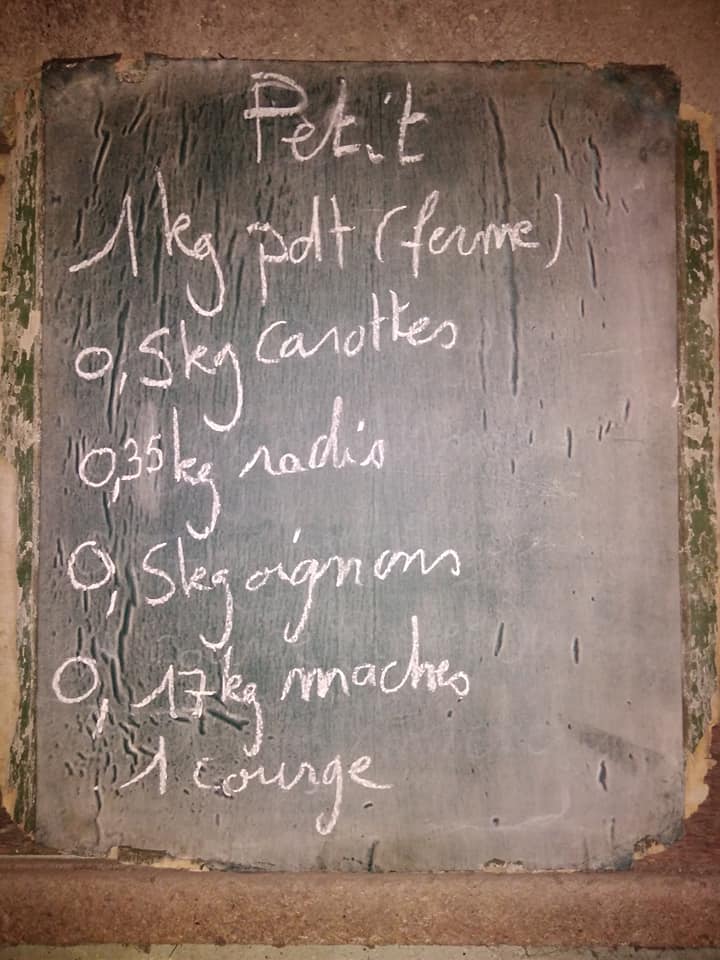 Petit
1kg pdt (ferme)
0,5kg carottes
0,35kg radis
0,5kg oignons
0,17kg maches
1 courge